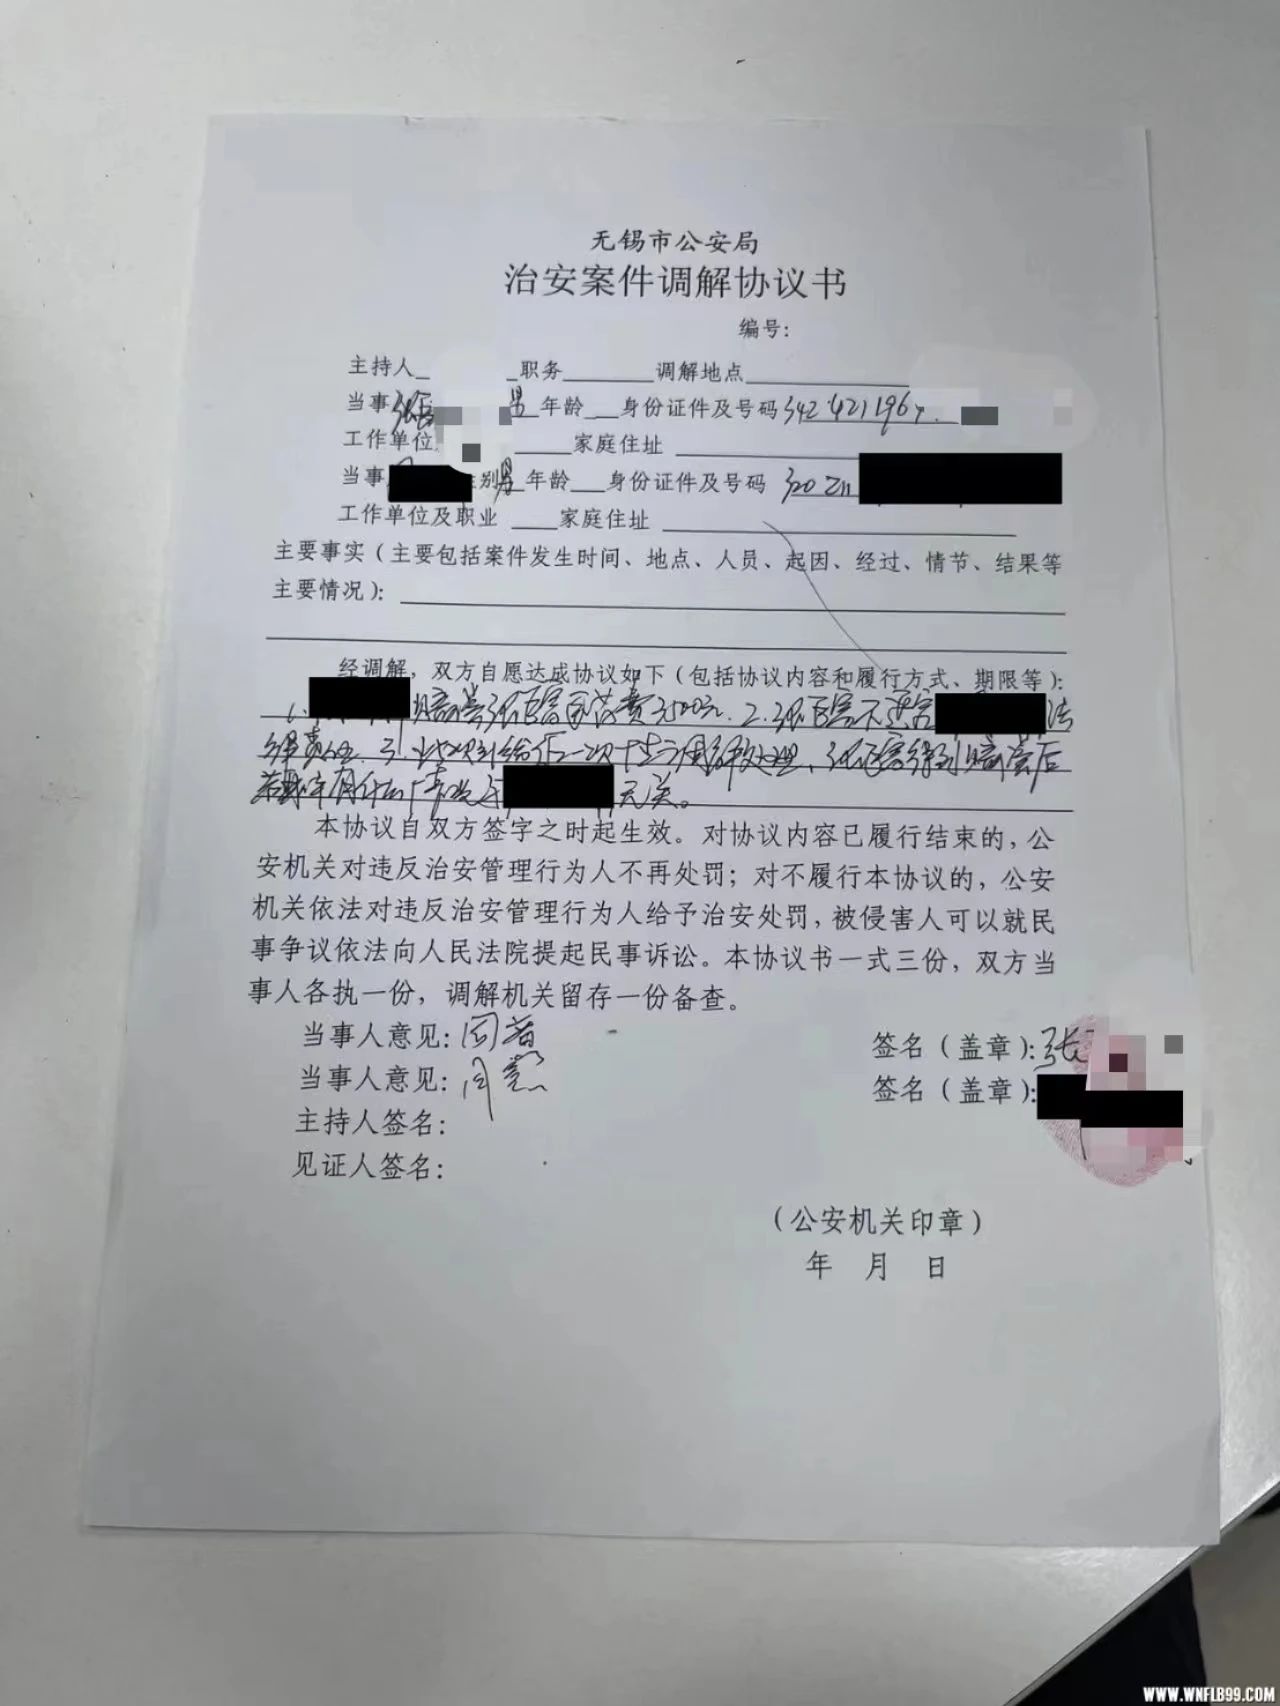 无锡市公安局
治安案件调解协议书
编号：
主持人 职务 调解地点
当事 男 年龄 身份证件及号码 342421196
工作单位 家庭住址
当事 性别男 年龄 身份证件及号码 320211
工作单位及职业 家庭住址
主要事实（主要包括案件发生时间、地点、人员、起因、经过、情节、结果等
主要情况）：
经调解，双方自愿达成协议如下（包括协议内容和履行方式、期限等）：
1. 赔偿张 医药费 元. 2. 张 不追究 法
律责任. 3. 此纠纷作一次性 处理、张 得到赔偿后
若 有什么 与 无关。
本协议自双方签字之时起生效。对协议内容已履行结束的，公
安机关对违反治安管理行为人不再处罚；对不履行本协议的，公安
机关依法对违反治安管理行为人给予治安处罚，被侵害人可以就民
事争议依法向人民法院提起民事诉讼。本协议书一式三份，双方当
事人各执一份，调解机关留存一份备查。
当事人意见：同意 签名（盖章）：张
当事人意见：同意 签名（盖章）：
主持人签名：
见证人签名：
（公安机关印章）
年 月 日
WWW.WNFLB99.COM